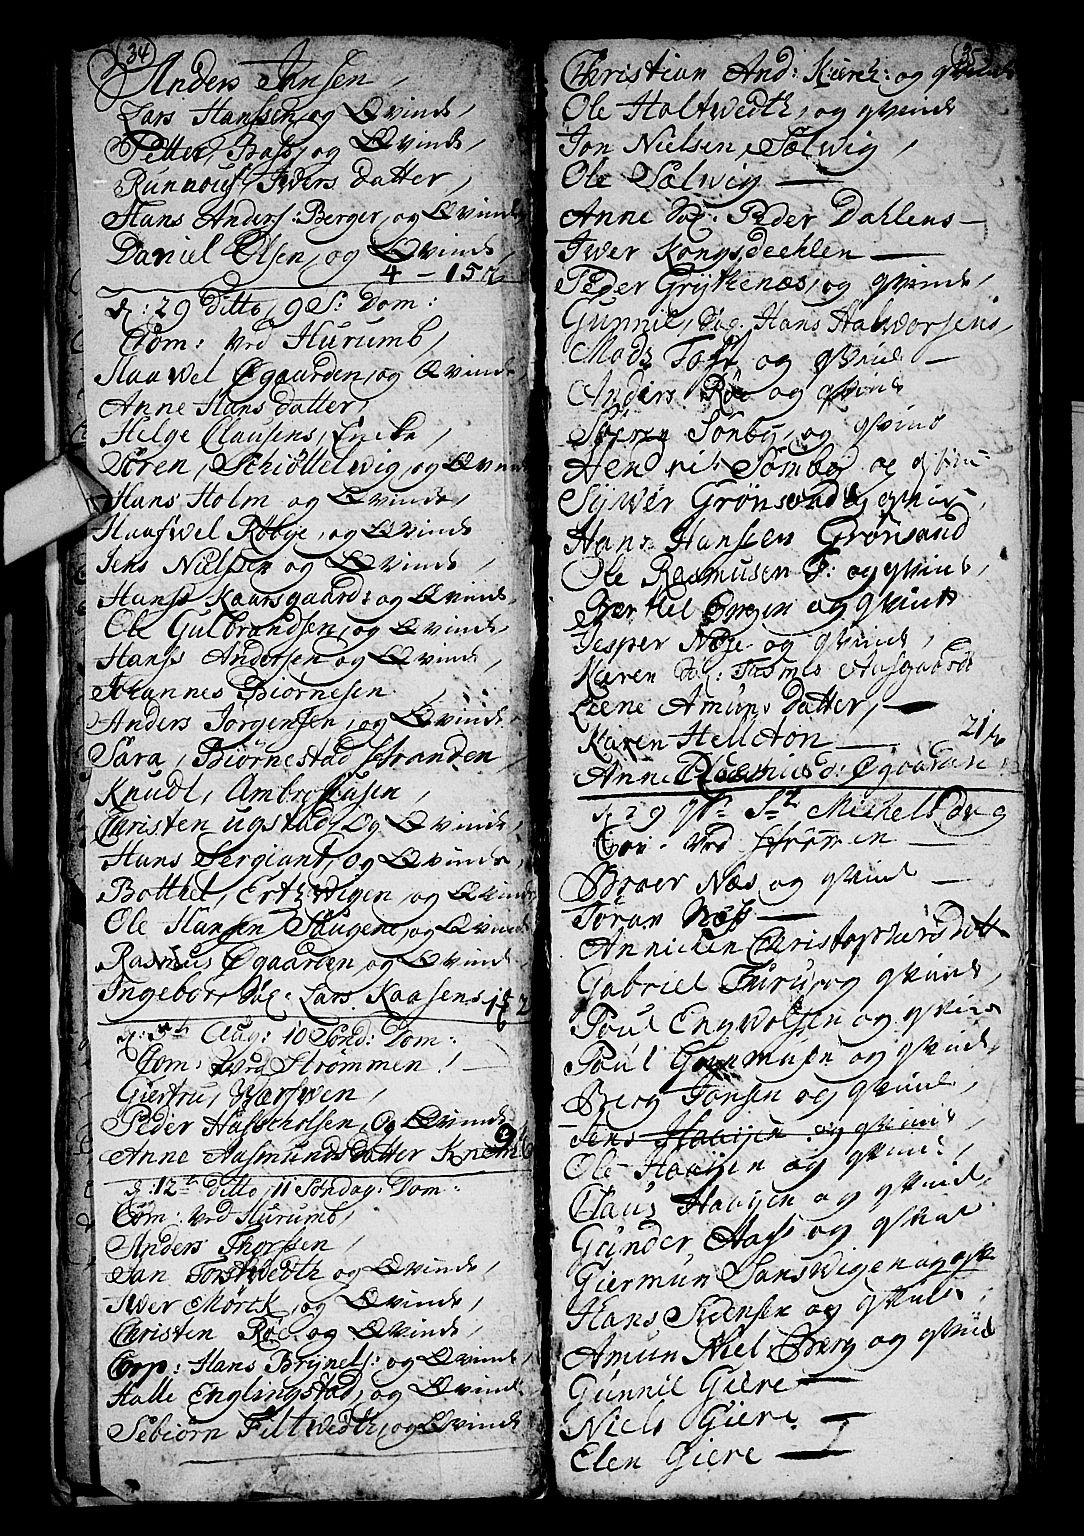 34
Anders Jansen,
Lars Hanssen, og Qvinde,
Petter, Bass, og Qvinde,
Runnouf, Ivers datter,
Hans Anders: Berger, og Qvinde,
Daniel Olsen, og Qvinde,
4 - 15
d: 29 Ditto, 9 S: Dom:
Com: ved Hurumb,
Haavel Øgaarden, og Qvinde
Anne Hans datter,
Helge Clausens, Encke,
Sören, Schiöttelvig, og Qvinde
Hans Holm og Qvinde,
Haafwel Röbye, og Qvinde
Jens Nielsen og Qvinde,
Hanss Kaarsgaard: og Qvinde,
Ole Gulbrandsen, og Qvinde,
Hanss Andersen og Qvinde,
Johannes Biornesen
Anders Jörgensen, og Qvinde
Sara, Biörnestad stranden
Knudt, Ambrosiusen,
Christen ugstad, Og Qvinde,
Hans Sergiant, og Qvinde,
Bottel, Ertzvigen, og Qvinde
Ole Hansen Haugene, og Qvinde
Rasmus Øgaarden og Qvinde
Ingebor, Dag: Lars Kaasens
d: 5th Aug: 10 Sönd: Dom:
Com: ved Strömmen!
Giertru, Værsven,
Peder Hafscholsen, Og Qvinde
Anne Aasmunds datter Knem
9
d: 12th Ditto, 11 Söndag: Dom:
Com: ved Hurumb,
Anders Thorssen,
Jan Torstvedth og Qvinde,
Iver Mörck, og Qvinde,
Christen Röe og Qvinde,
Corp: Hans Brynels: og Qvinde,
Halle Englingstad, og Qvinde
Sebiörn Filtvedth, og Qvinde
35
Christian And: Kierk: og qvinde
Ole Holtwedth, og qvinde
Jon Nielsen, Sælwig,
Ole Sælwig
Anne Dag: Peder Dahlens
Iwer Kongsdeehlen
Peder Grytenæs, og qvinde,
Gunnil, Dag: Hans Halvorsens,
Mads Tofte og qvinde
Anders Röe og qvinde
Sören Sönby, og qvinde
Hendrik Sömby og qvinde
Sywer Grönsand og qvinde,
Hans Hansen Grönsand
Ole Rasmusen og qvinde,
Berthel Ørgen og qvinde
Jesper Næse og qvinde,
Karen Dag: Aasgaard
Leene Amuns datter,
Karen Hellston
21
Anne Rasmus d: Øgaarden
d: 29 St Michels Dag
Com: Ved Strömmen
Broer Næs og qvinde
Toran Næss
Annicken Christophersdatt
Gabriel Furu, og qvinde,
Poul Engvolsen og qvinde
Poul Gunmusen og qvinde,
Berg Jonsen og qvinde,
Jens Haagen og qvinde
Ole Haagen og qvinde,
Claus Haagen og qvinde
Gunder Aass og qvinde
Giermun Sansvigen og qv
Hans Steensen og qvinde,
Amun Niels Berg og qvinde
Gunnil Giere
Niels Giere
Elen Giere